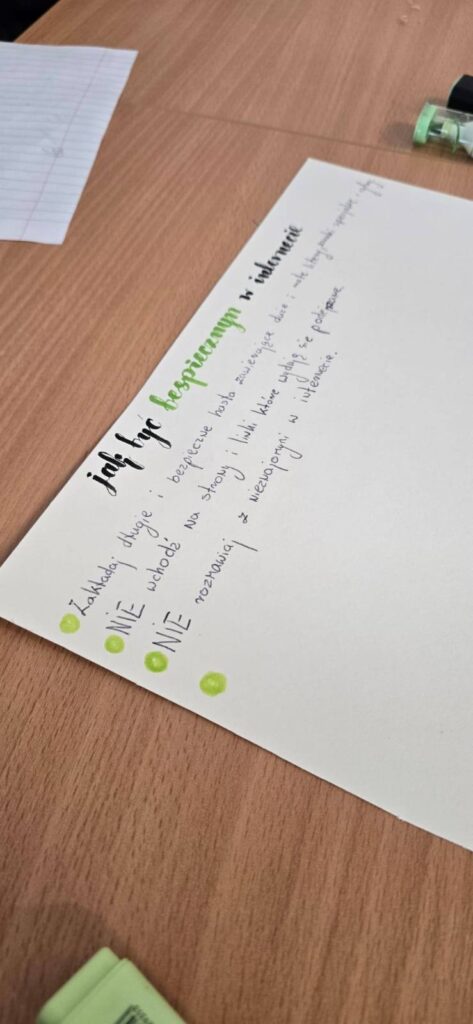 jak być bespiecznym w internecie
Zakładaj długie i bezpieczne hasła zawierające duże i małe litery, znaki specjalne i cyfry
NIE wchodź na strony i linki które wydają się podejrzane
NIE rozmawiaj z nieznajomymi w internecie.